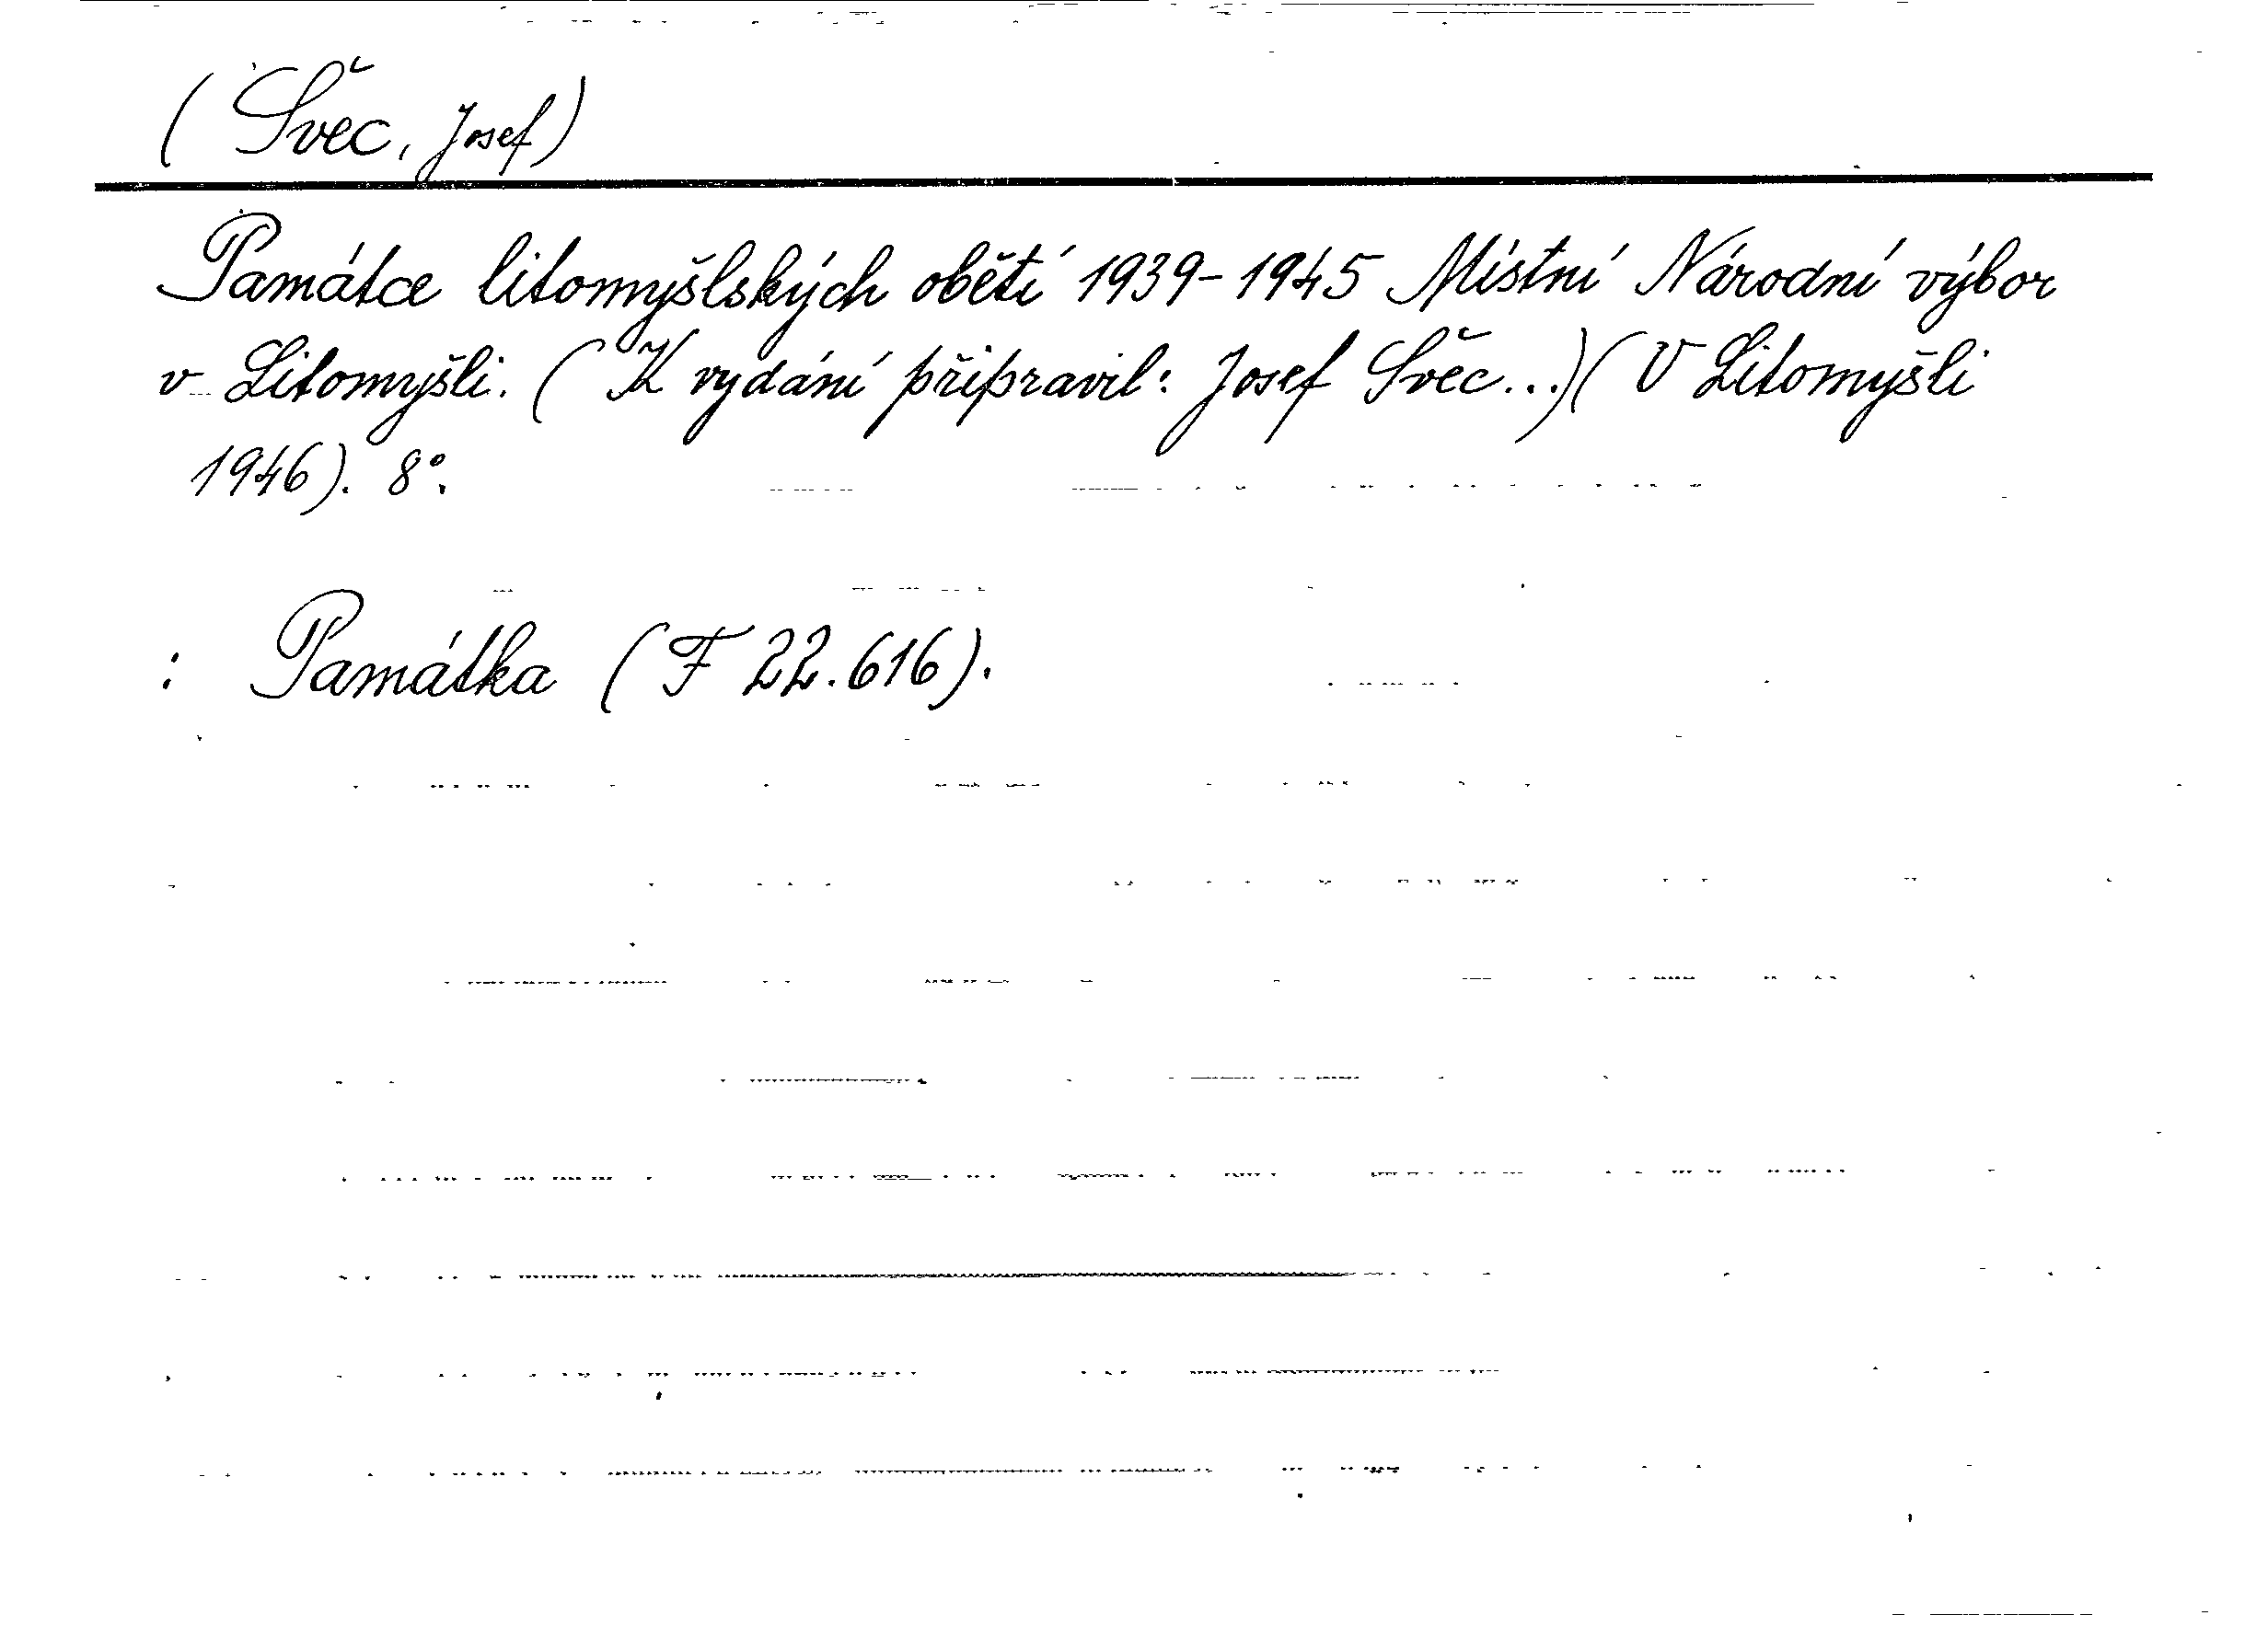 (Švec, Josef)
Památce litomyšlských obětí 1939-1945 Místní Národní výbor
v Litomyšli. (K vydání připravil: Josef Švec...)(V Litomyšli
1946). 8°.
: Památka (F 22.616).